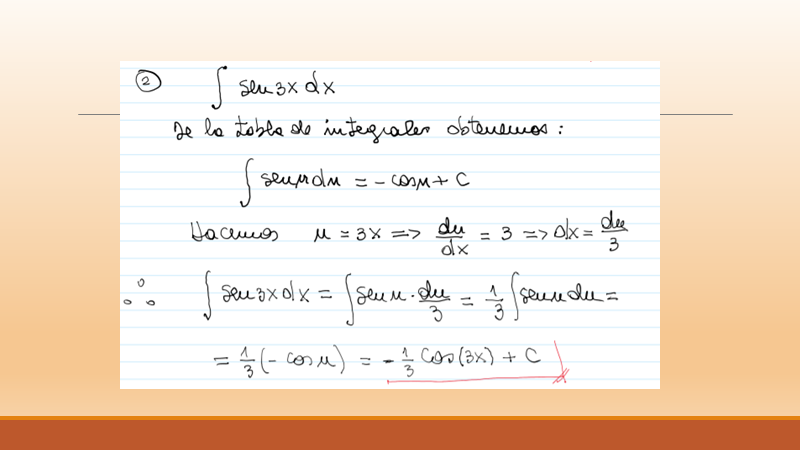 2 ∫ sen 3x dx
De la tabla de integrales obtenemos :
∫ sen u du = - cos u + C
Hacemos u = 3x => du/dx = 3 => dx = du/3
∴ ∫ sen 3x dx = ∫ sen u · du/3 = 1/3 ∫ sen u du =
= 1/3 (- cos u) = - 1/3 Cos (3x) + C